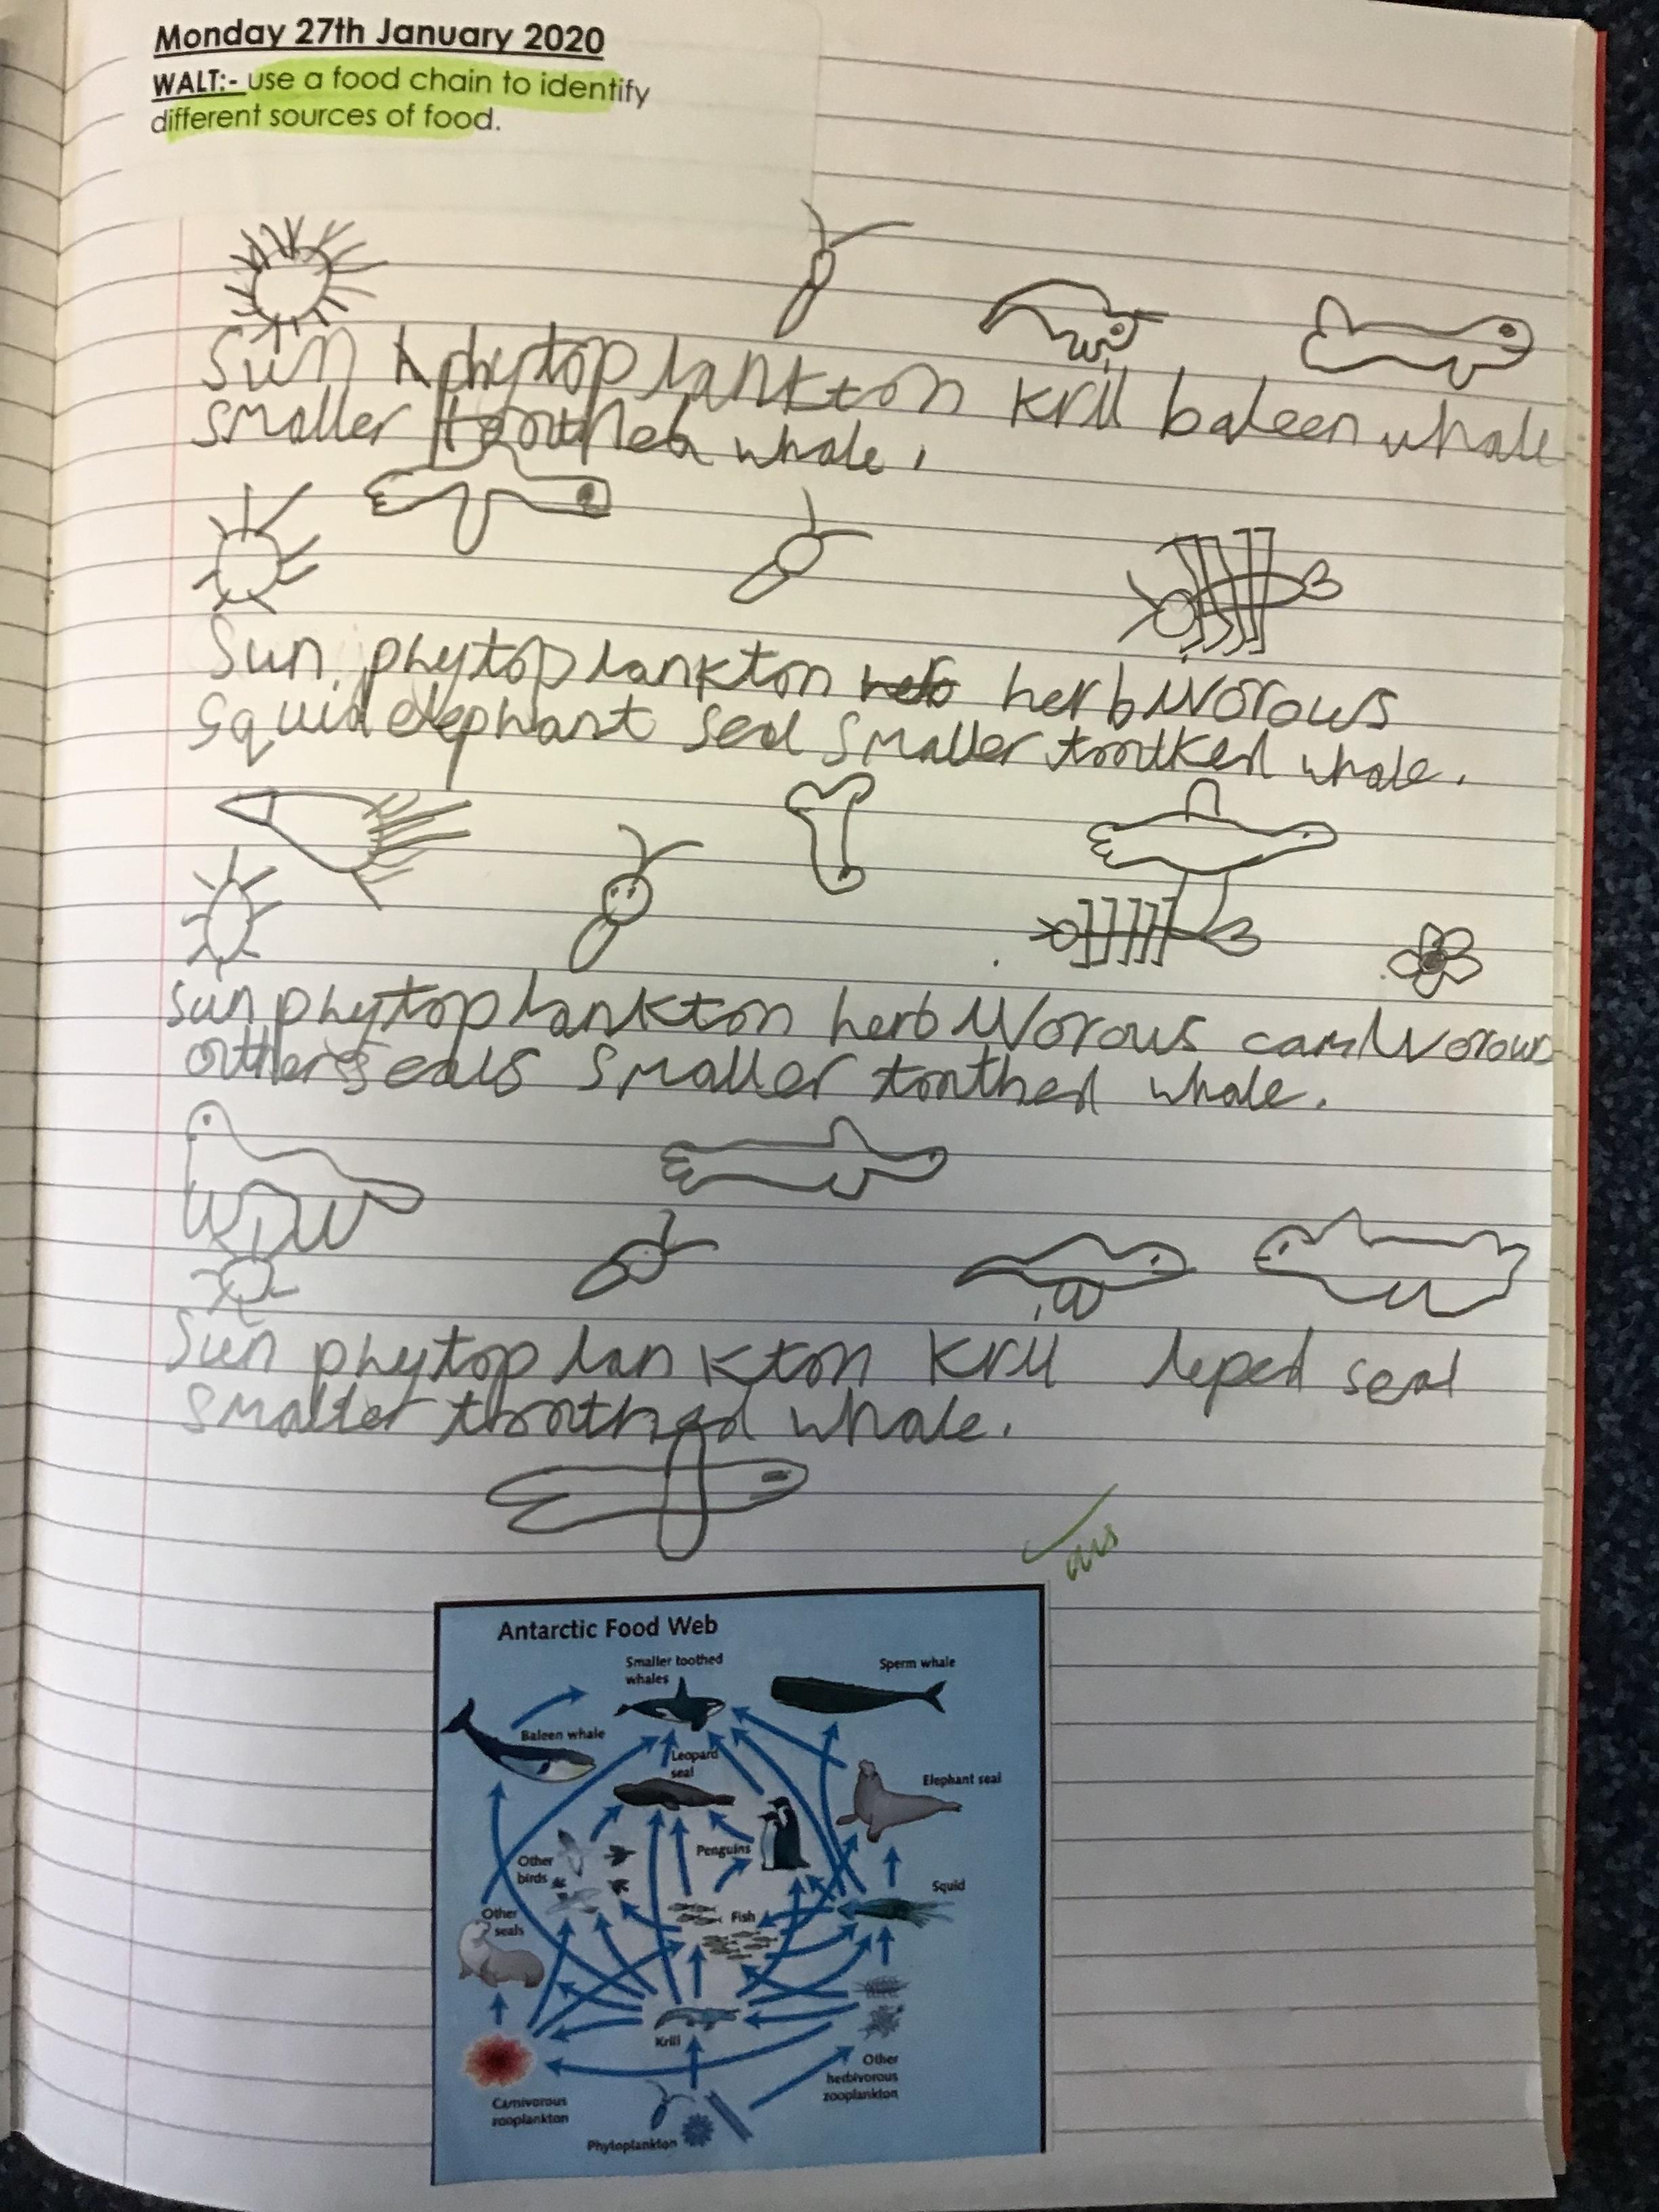 Monday 27th January 2020
WALT:- use a food chain to identify
different sources of food.
Sun phytoplankton Krill baleen whale
smaller toothed whale.
Sun phytoplankton herbivorous
squid elephant seal smaller toothed whale.
sun phytoplankton herbivorous carnivorous
other seals smaller toothed whale.
Sun phytoplankton Krill leped seal
smaller toothed whale.
Antarctic Food Web
Smaller toothed
whales
Sperm whale
Baleen whale
Leopard
seal
Elephant seal
Penguins
Other
birds
Squid
Other
seals
Fish
Krill
Other
herbivorous
zooplankton
Carnivorous
zooplankton
Phytoplankton